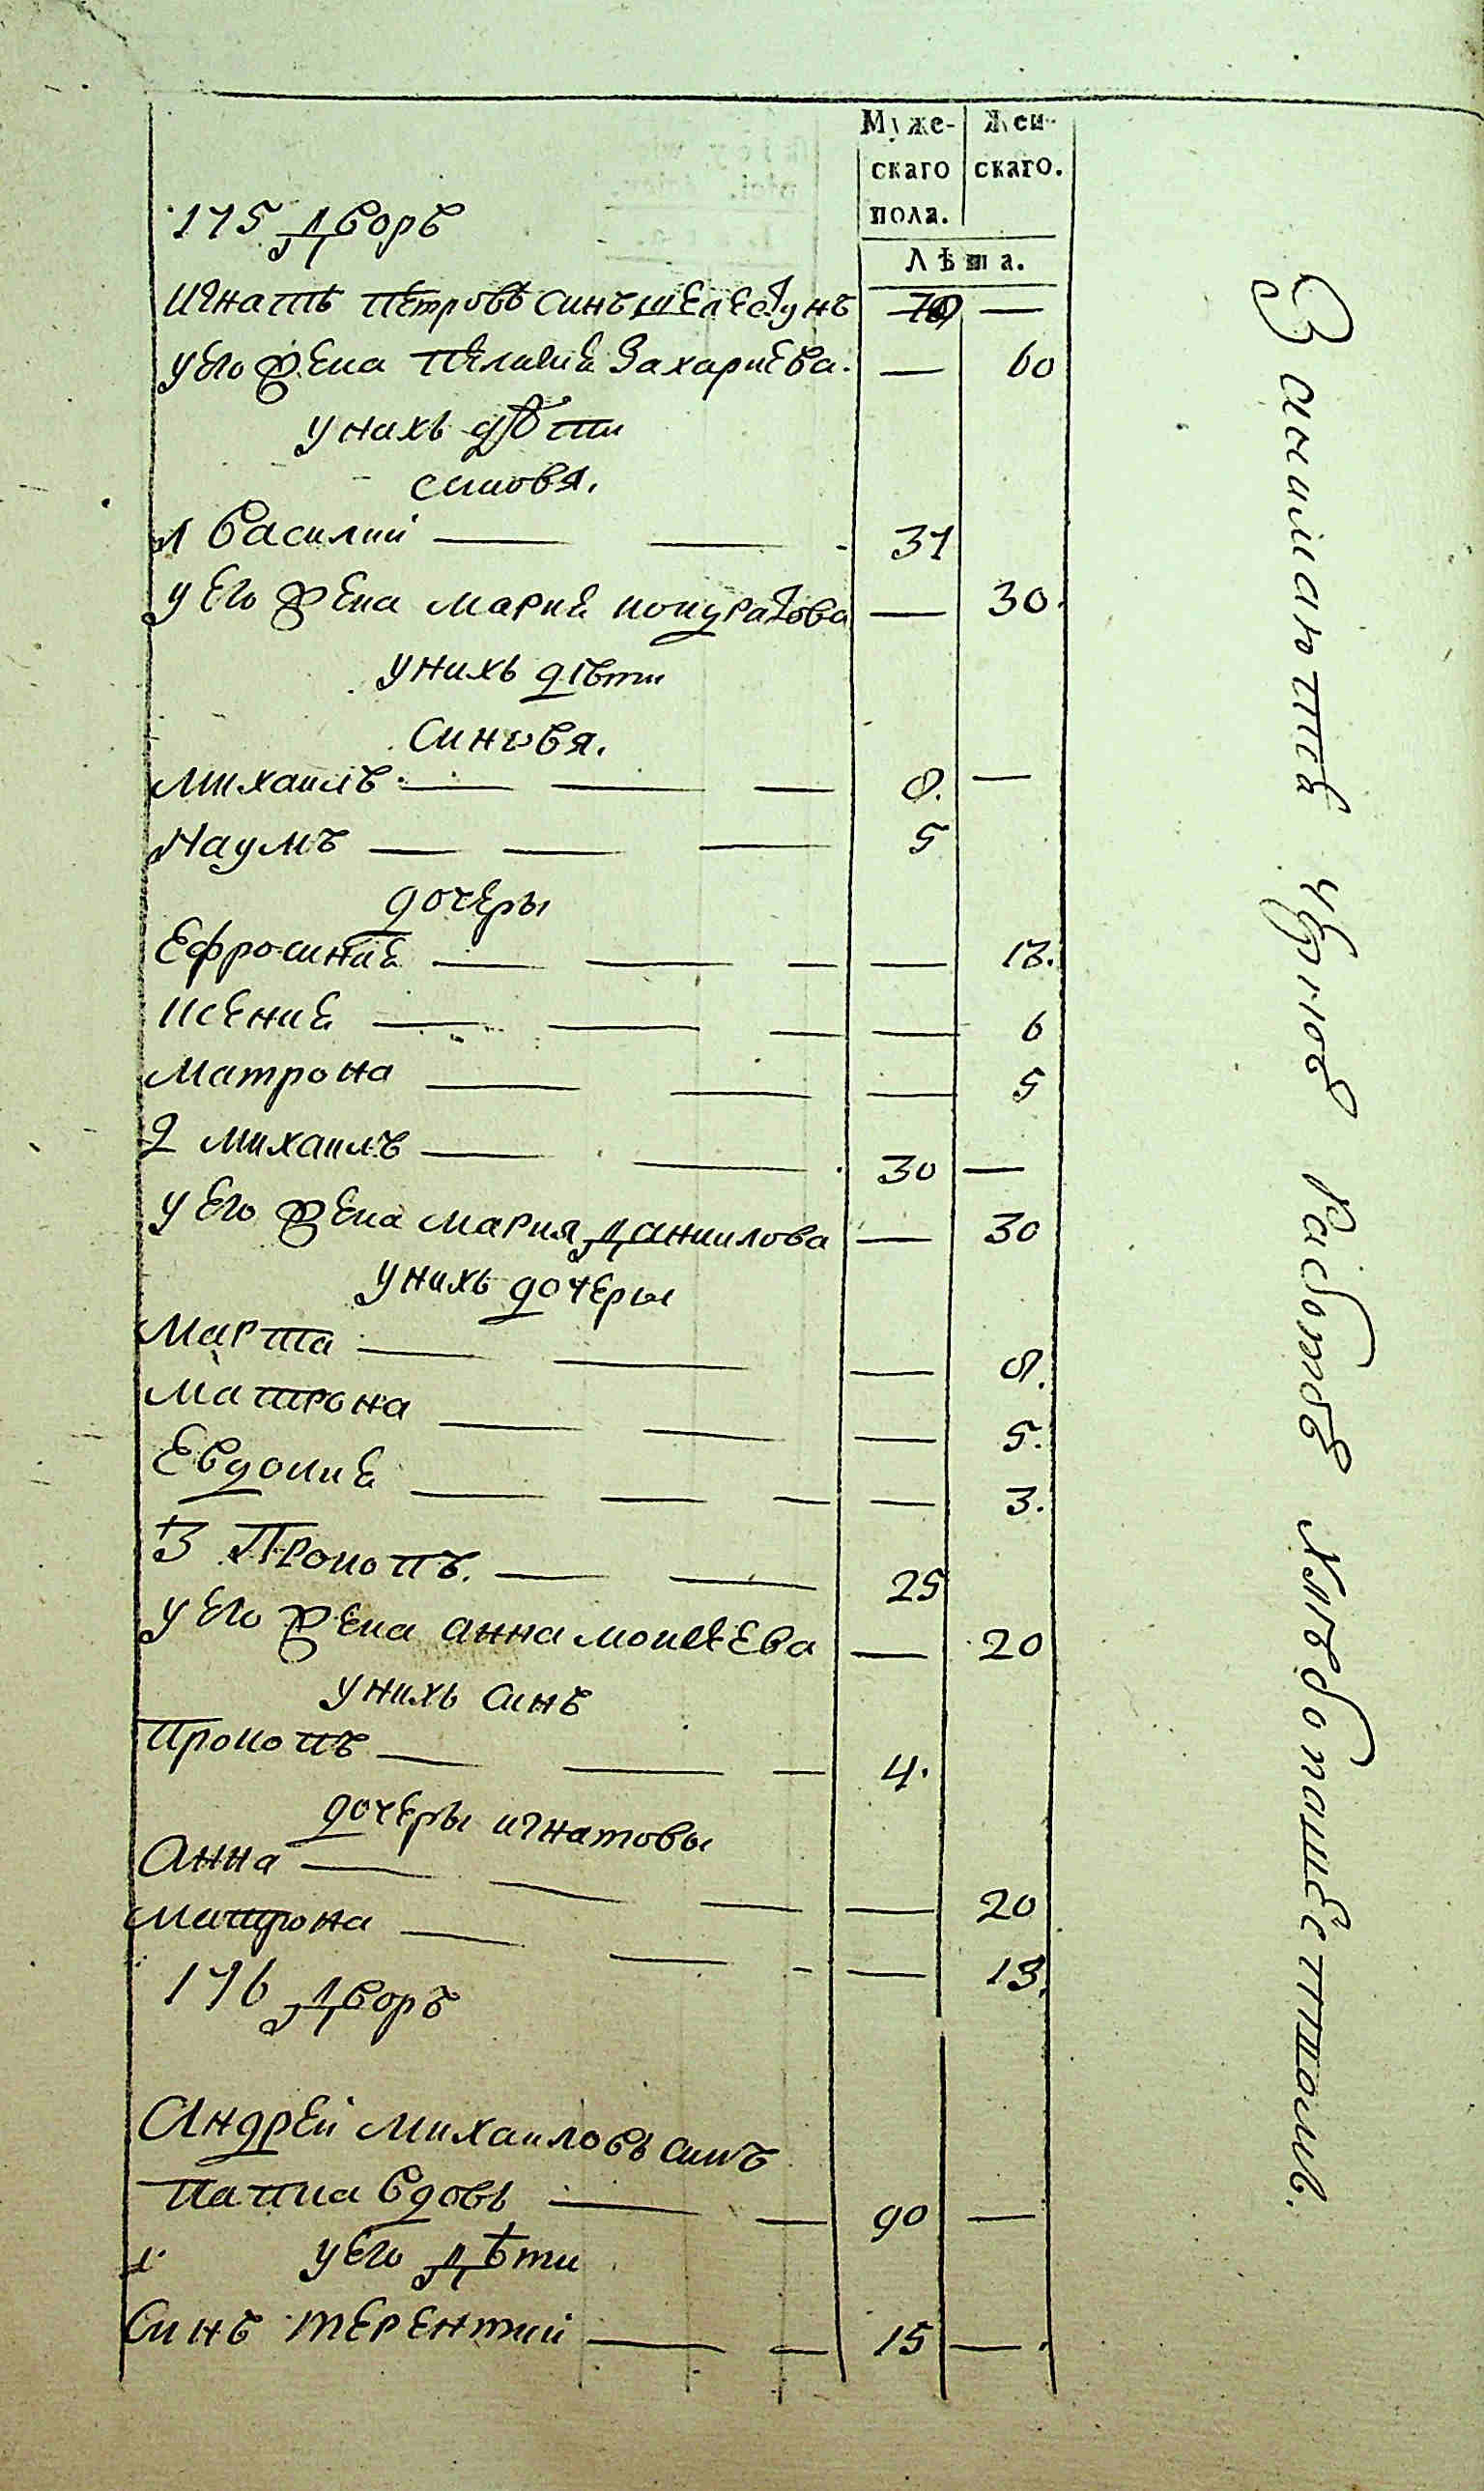 Муже-
скаго
пола.
Жен-
скаго.
Лѣта.
175 дворъ
Игнатъ Петровъ синъ шелестунъ 70 —
у его жена Пелагиꙗ Захариева. — 60
у нихъ дѣти
синовя.
1 Василий — — - 31
у его жена Мария кондратова — 30.
у нихъ дѣти
Синовя.
Михаилъ — — — 8. —
Наумъ — — — 5
дочеры
Ефросиния — — — — 13.
Ксения — — — — 6
Матрона — — — 5
2 Михаилъ — — 30 —
у его жена Мария Даниилова — 30
у нихъ дочеры
Марта — — — 8.
Матрона — — — 5.
Евдокия — — — — 3.
3 Прокопъ. — — 25
у его жена Анна Моисеева — 20
у нихъ синъ
Прокопъ — — — 4.
дочеры игнатовы
Анна — — — — 20
Матрона — — - — 13.
176 дворъ
Андрей Михаиловъ синъ
вдовъ — — 90 —
1. у его дѣти
Синъ терентий — — 15 — .
Занимаются въ работѣ хлѣбопашествомъ.